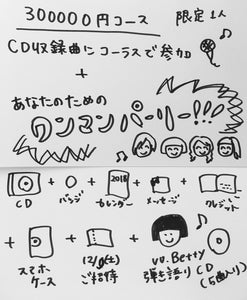 300000円コース 限定1人
CD収録曲にコーラスで参加
+
あなたのための
ワンマンパーリー!!
2018
CD + バッジ + カレンダー + メッセージ + クレジット
+ スマホケース + 12/9(土)ご招待 + vo.Betty弾き語りCD(5曲入り)